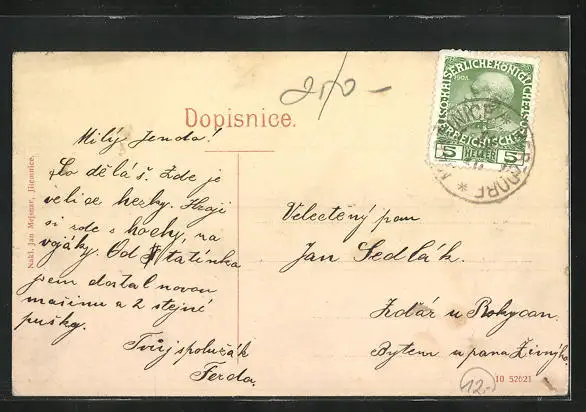 250 –
Dopisnice.
KAISERLICHE KÖNIGLICHE
1908
ÖSTERREICHISCHE POST
5 HELLER 5
DORF
Milý Jendo!
Co děláš. Zde je
velice hezky. Hraji
si zde s hochy, na
vojáky. Od tatínka
jsem dostal novou
mašinu a 2 stejné
pušky.
Tvůj spolužák
Ferda.
Velectěný pan
Jan Sedlák.
Ždár u Rokycan.
Bytem u pana Živnýho
Nakl. Jan Mejsnar, Jilemnice.
12.-
10 52621